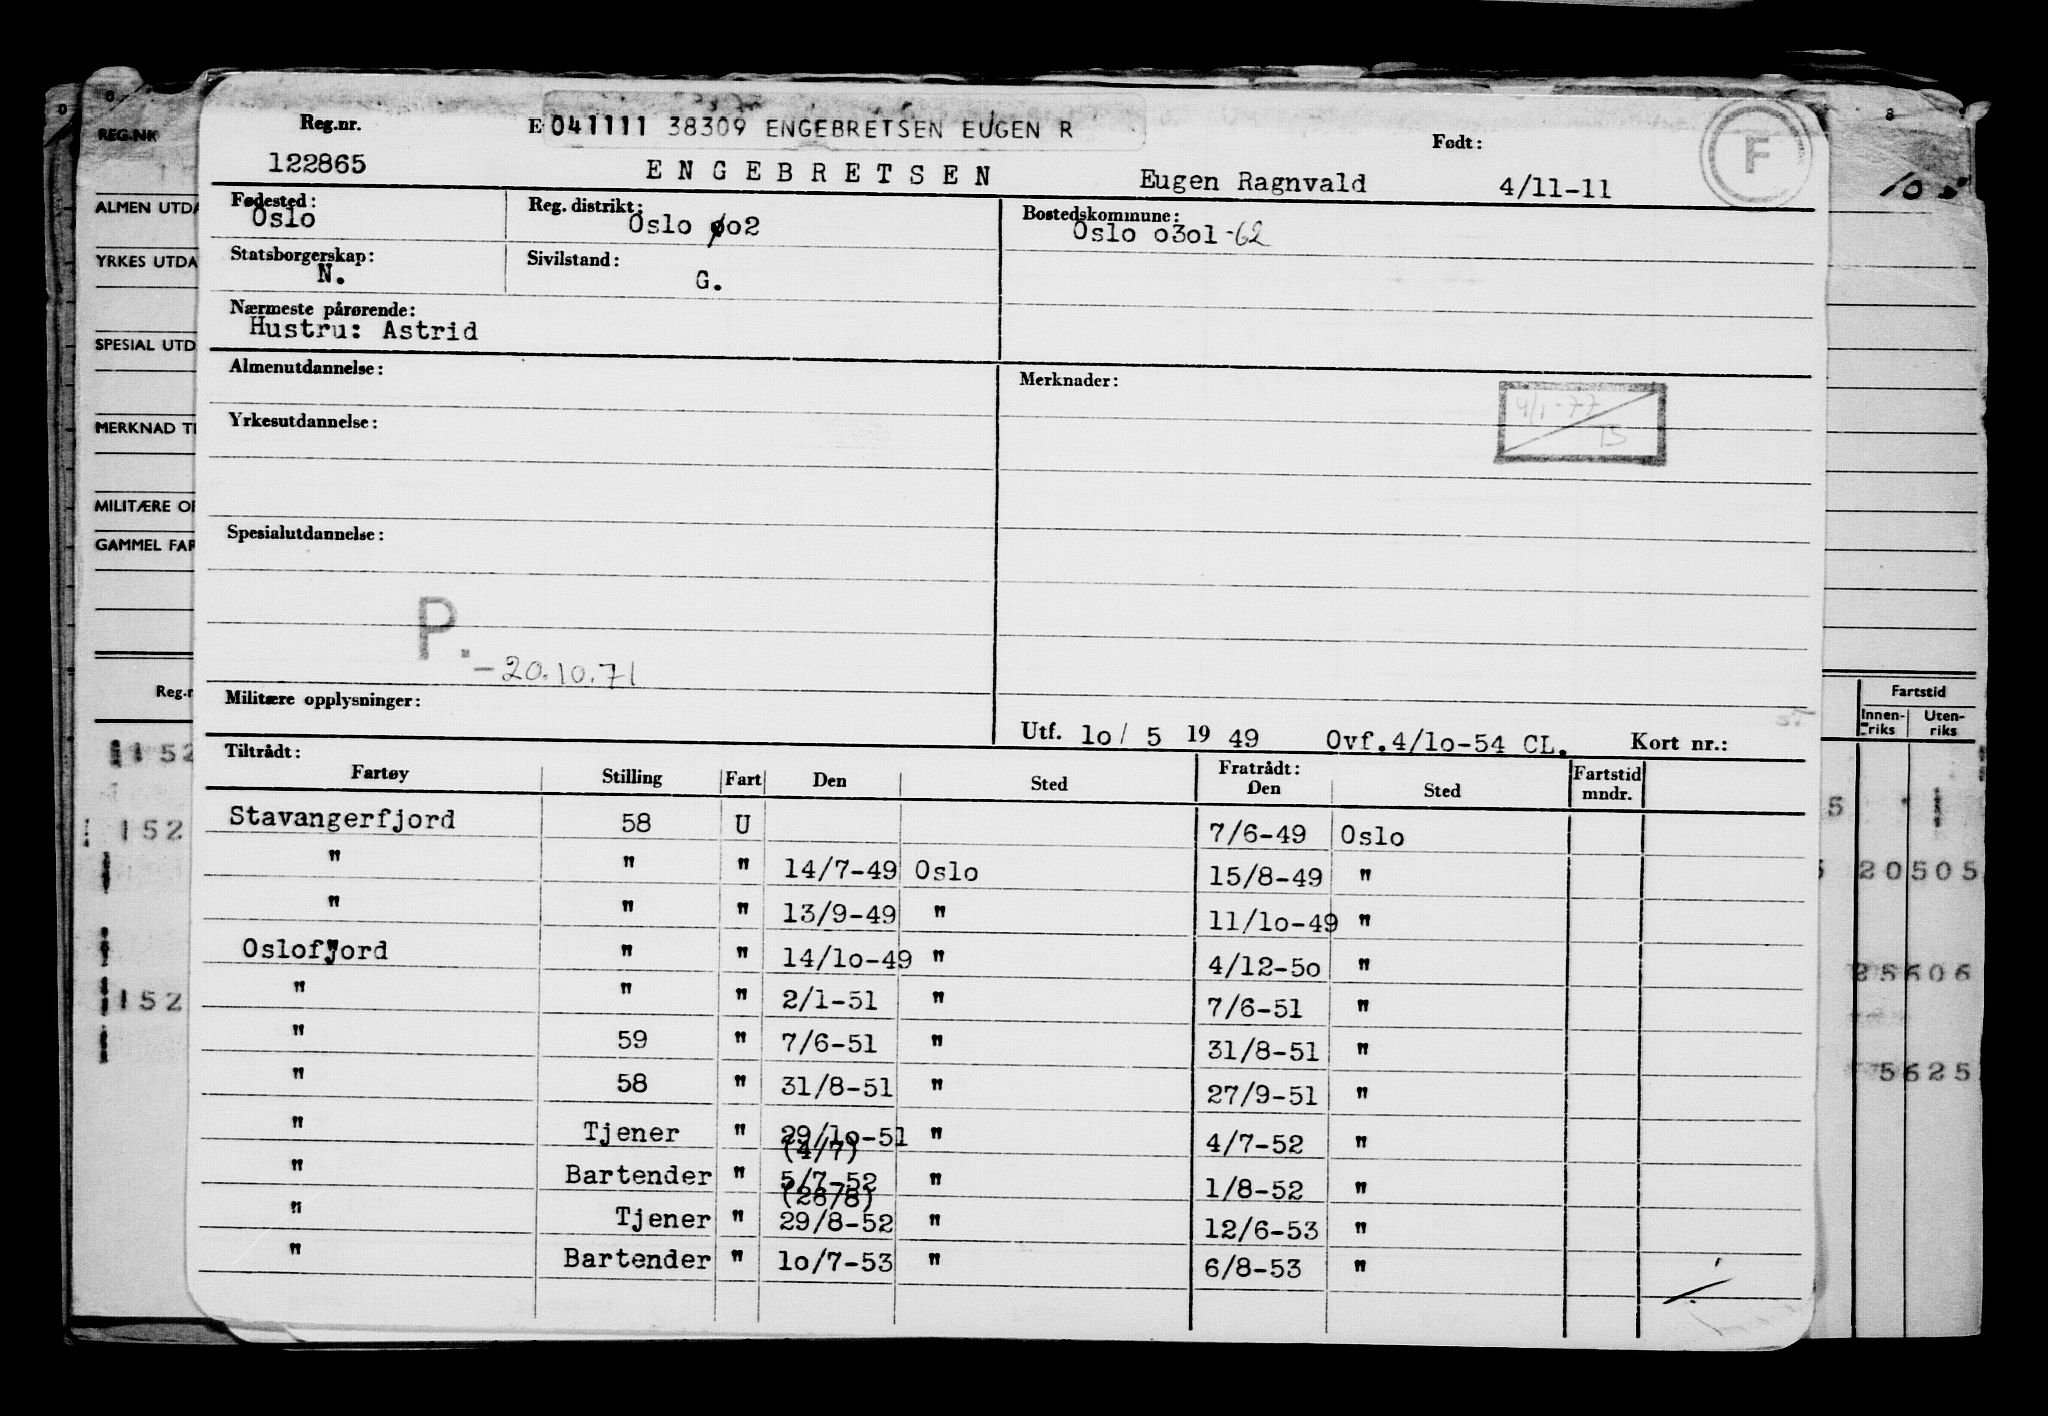 Reg.nr. E 041111 38309 ENGEBRETSEN EUGEN R Født: F
122865 ENGEBRETSEN Eugen Ragnvald 4/11-11
Fødested: Oslo Reg. distrikt: Oslo 002 Bostedskommune: Oslo o3o1-62
Statsborgerskap: N. Sivilstand: G.
Nærmeste pårørende:
Hustru: Astrid
Almenutdannelse: Merknader:
4/1-77
Yrkesutdannelse:
Spesialutdannelse:
P.
-20.10.71
Militære opplysninger:
Utf. lo/ 5 19 49 Ovf.4/lo-54 CL. Kort nr.:
Tiltrådt: Fratrådt:
Fartøy Stilling Fart Den Sted Den Sted Fartstid mndr.
Stavangerfjord 58 U 7/6-49 Oslo
" " " 14/7-49 Oslo 15/8-49 "
" " " 13/9-49 " 11/lo-49 "
Oslofjord " " 14/lo-49 " 4/12-5o "
" " " 2/1-51 " 7/6-51 "
" 59 " 7/6-51 " 31/8-51 "
" 58 " 31/8-51 " 27/9-51 "
" Tjener " 29/lo-51 " 4/7-52 "
(4/7)
" Bartender " 5/7-52 " 1/8-52 "
(28/8)
" Tjener " 29/8-52 " 12/6-53 "
" Bartender " lo/7-53 " 6/8-53 "
REG.NR
ALMEN UTDA
YRKES UTDA
SPECIAL UTD
MERKNAD TI
MILITÆRE OP
GAMMEL FAR
Reg.n
152
152
152
10
Fartstid
Innenriks Utenriks
5
20505
25606
5625